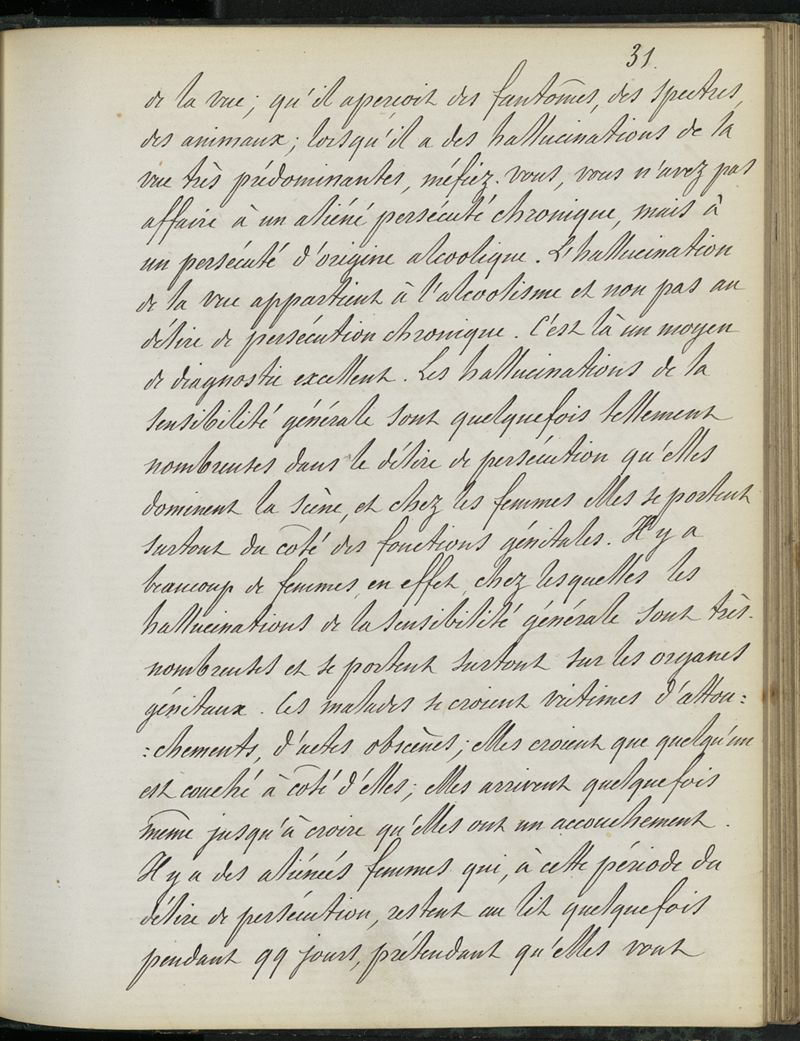 31.
de la vue; qu'il aperçoit des fantômes, des spectres,
des animaux; lorsqu'il a des hallucinations de la
vue très prédominantes, méfiez-vous, vous n'avez pas
affaire à un aliéné persécuté chronique, mais à
un persécuté d'origine alcoolique. L'hallucination
de la vue appartient à l'alcoolisme et non pas au
délire de persécution chronique. C'est là un moyen
de diagnostic excellent. Les hallucinations de la
sensibilité générale sont quelquefois tellement
nombreuses dans le délire de persécution qu'elles
dominent la scène, et chez les femmes elles se portent
surtout du côté des fonctions génitales. Il y a
beaucoup de femmes, en effet, chez lesquelles les
hallucinations de la sensibilité générale sont très-
nombreuses et se portent surtout sur les organes
génitaux. Ces malades se croient victimes d'attou=
=chements, d'actes obscènes; elles croient que quelqu'un
est couché à côté d'elles; elles arrivent quelquefois
même jusqu'à croire qu'elles ont un accouchement.
Il y a des aliénées femmes qui, à cette période du
délire de persécution, restent au lit quelquefois
pendant 99 jours, prétendant qu'elles vont